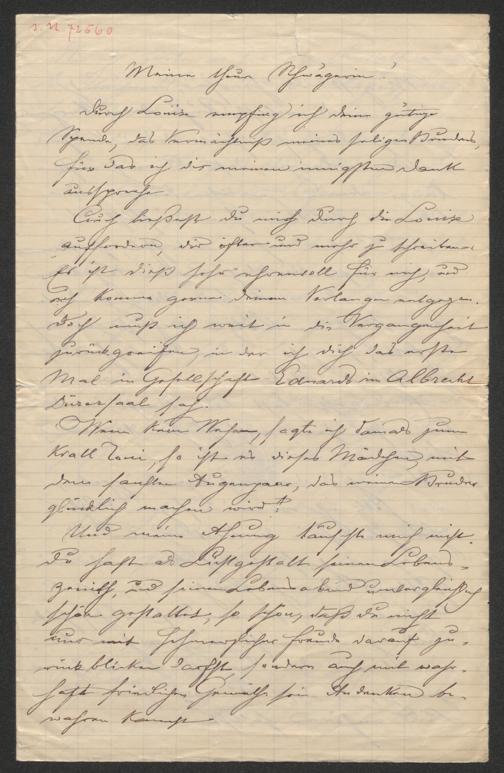 I. N. 72560
Meine theure Schwägerin!
Durch Louise empfing ich deine gütige
Spende, das Vermächtniß meines seligen Bruders,
für das ich dir meinen innigsten Dank
ausspreche
Auch ließest du mich durch die Louise
auffordern, dir öfter und mehr zu schreiben.
Es ist dieß sehr ehrenvoll für mich, und
ich komme gerne deinem Verlangen entgegen.
Doch muß ich weit in die Vergangenheit
zurückgreifen, in der ich dich das erste
Mal in Gesellschaft Eduards im Albrecht
Dürersaal sah.
Wenn kein Wesen, sagte ich damals zum
Krall Toni, so ist es dieses Mädchen, mit
dem sanften Augenpaar, das meinen Bruder
glücklich machen wird!
Und meine Ahnung täuschte mich nicht.
Du hast als Lichtgestalt seinen Lebens-
zenith, und seinen Lebensabend unvergleichlich
schön gestaltet, so schön, daß du nicht
nur mit schmerzlicher Freude darauf zu-
rückblicken darfst, sondern auch mit wahr-
haft friedlichem Gemüthe sein Andenken be-
wahren kannst